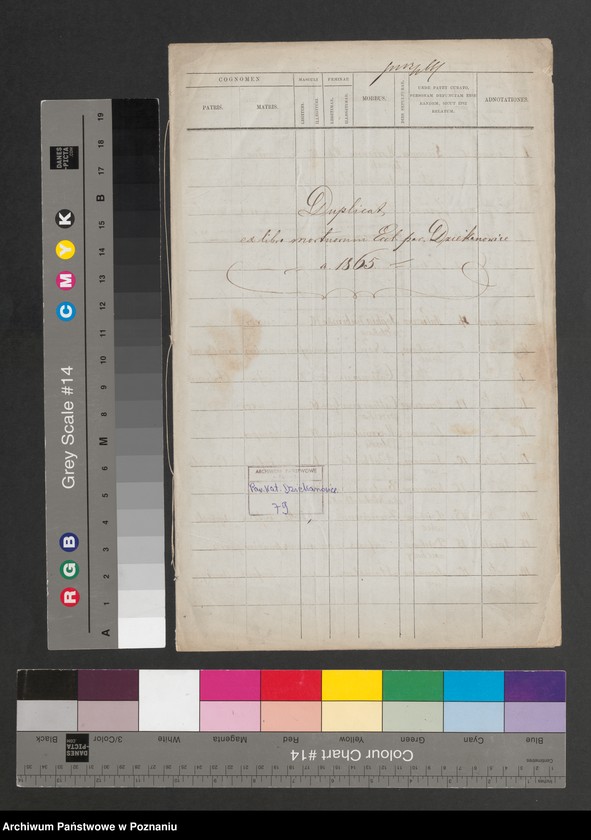 COGNOMEN
PATRIS.
MATRIS.
MASCULI
LEGITIMI
ILLEGITIMI
FEMINAE
LEGITIMAE.
ILLEGITIMAE.
MORBUS.
DIES SEPULTURAE.
ADNOTATIONES.
Duplicat
ex libro mortuorum Eccl. par. Dziekanowice
a 1865
ARCHIWUM PAŃSTWOWE
Par. Kat. Dziekanowice
79
Grey Scale #14
DANES-PICTA
.COM
R G B
C M Y K
A 1 2 3 4 5 6 M 8 9 10 11 12 13 14 15 B 17 18 19
Blue
Cyan
Green
Yellow
Red
Magenta
White
3/Color
Black
Colour Chart #14
DANES-PICTA
.COM
Centimetres
Inches
Archiwum Państwowe w Poznaniu